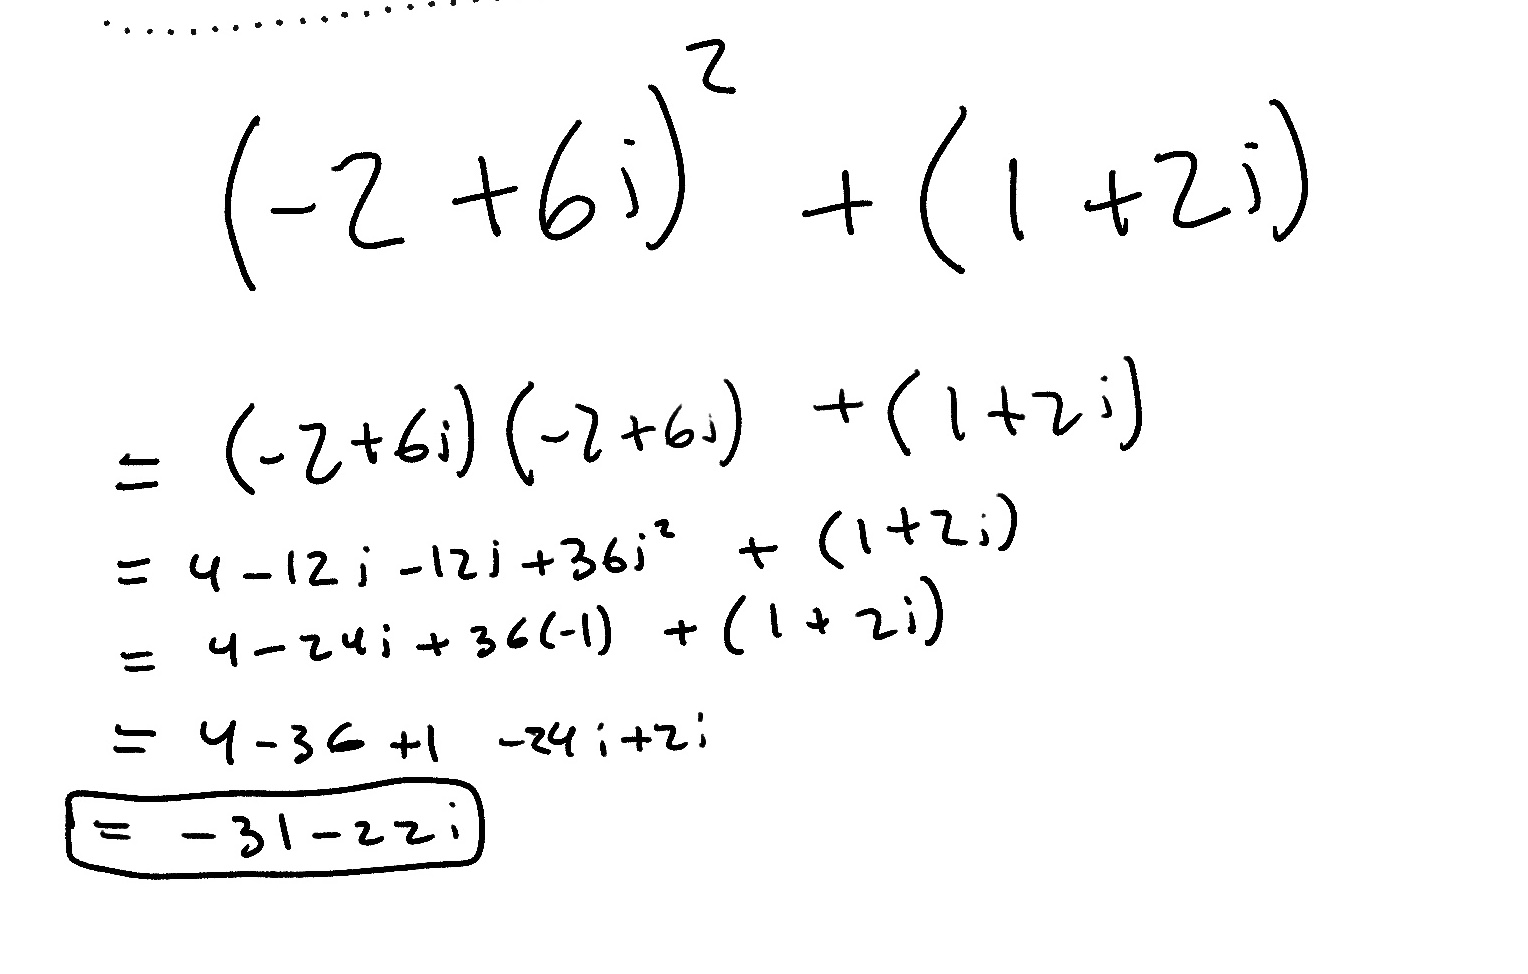 (-2+6i)² + (1+2i)
= (-2+6i)(-2+6i) + (1+2i)
= 4-12i-12i+36i² + (1+2i)
= 4-24i+36(-1) + (1+2i)
= 4-36+1 -24i+2i
= -31-22i